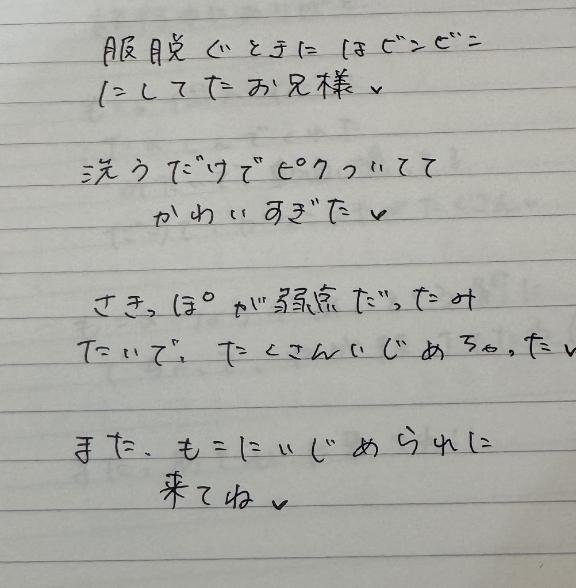 服脱ぐときにほどこどこ
にしてたお兄様✓
洗うだけでピクついてて
かわいすぎた✓
さきっぽが弱点だったみ
たいで、たくさんいじめちゃった✓
また、もこにいじめられに
来てね✓